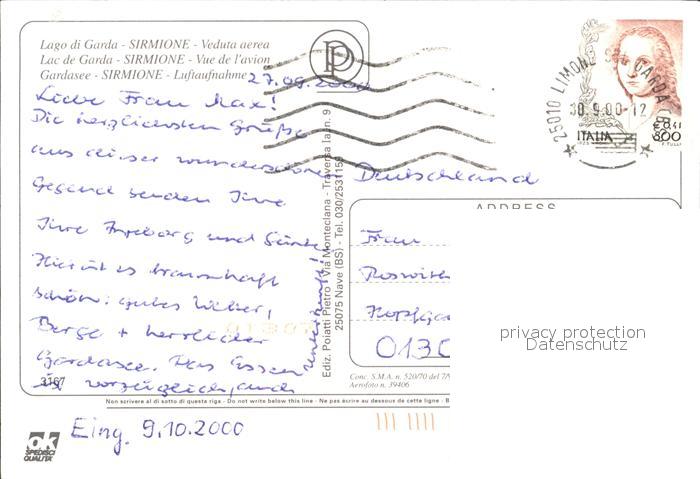 Lago di Garda - SIRMIONE - Veduta aerea
Lac de Garda - SIRMIONE - Vue de l'avion
Gardasee - SIRMIONE - Luftaufnahme
27.09.2000
Liebe Frau Max!
Die herzlichsten Grüße
aus dieser wunderschönen
Gegend senden Ihre
Ihre Ingeborg und Günter!
Hier ist es traumhaft
schön: gutes Wetter,
Berge + herrlicher
Gardasee. Das Essen
ist vorzüglich, auch
Unterkunft!
3167
Eing. 9.10.2000
ok
SPEDISCI
QUALITA'
Non scrivere al di sotto di questa riga - Do not write below this line - Ne pas écrire au dessous de cette ligne - B
Ediz. Poiatti Pietro - Via Monteclana - Traversa Ia, n. 9
25075 Nave (BS) - Tel. 030/2531159
P
25010 LIMONE SUL GARDA
30.9.00-12
ITALIA
€ 0,41
800
Deutschland
ADDRESS
Frau
Roswith
Hopfgar
0130
privacy protection
Datenschutz
Conc. S.M.A. n. 520/70 del 7/
Aerofoto n. 39406